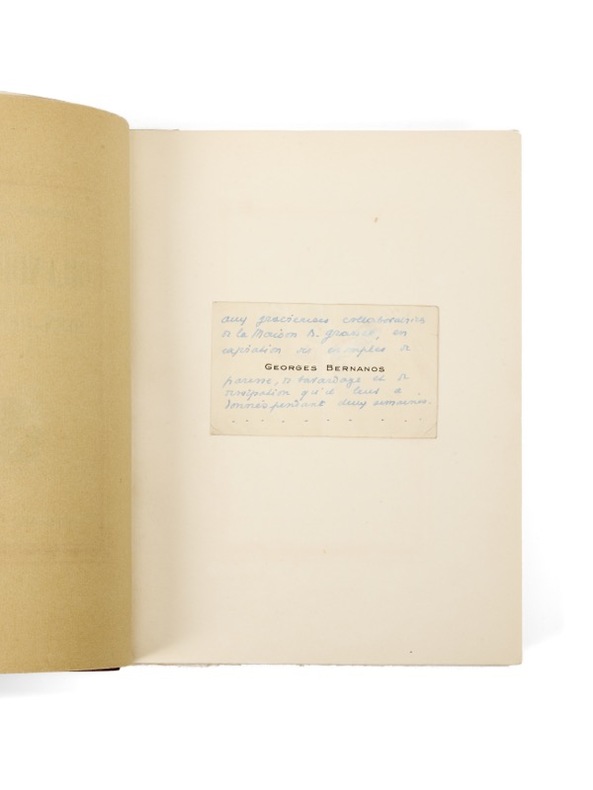 aux gracieuses collaboratrices
de la Maison B. Grasset, en
expiation des exemples de
GEORGES BERNANOS
paresse, de bavardage et de
dissipation qu'il leur a
donnés pendant deux semaines.